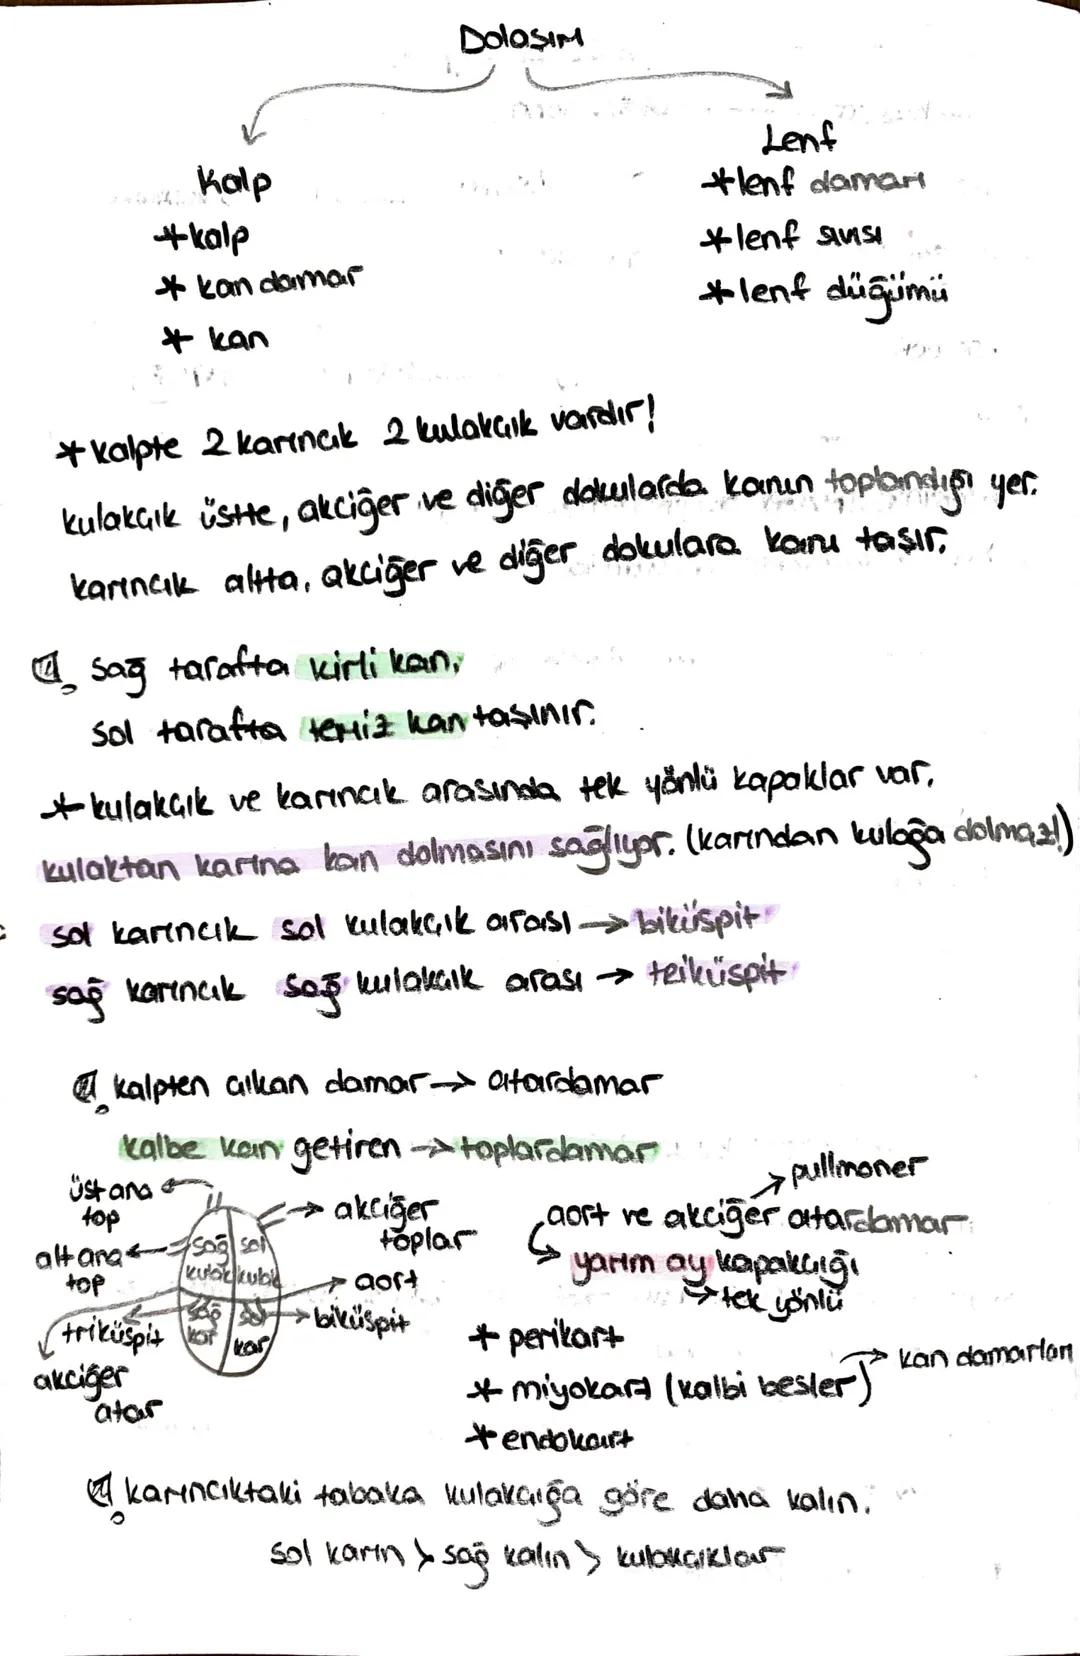 Dolaşım
Kalp
*kalp
* kan damar
* kan
Lenf
*lenf damarı
*lenf sıvısı
*lenf düğümü
*kalpte 2 karıncık 2 kulakcık vardır!
kulakcık üstte, akciğer ve diğer dokularda kanın toplandığı yer.
karıncık altta, akciğer ve diğer dokulara kanı taşır.
sağ tarafta kirli kan,
sol tarafta temiz kan taşınır.
*kulakçık ve karıncık arasında tek yönlü kapaklar var.
kulaktan karına kan dolmasını sağlıyor. (karından kulağa dolmaz!)
sol karıncık sol kulakçık arası → biküspit
sağ karıncık sağ kulakcık arası → teiküspit
kalpten çıkan damar → atardamar
kalbe kan getiren → toplardamar
üst ana
top
alt ana
top
triküspit
akciğer
atar
sağ
kulak
sol
kulak
sağ
kar
sol
kar
akciğer
toplar
aort
biküspit
pullmoner
aort ve akciğer atardamar
yarım ay kapakçığı
→ tek yönlü
* perikart
* miyokart (kalbi besler) → kan damarları
* endokart
karıncıktaki tabaka kulakcığa göre daha kalın.
sol karın > sağ kalın > kulakcıklar